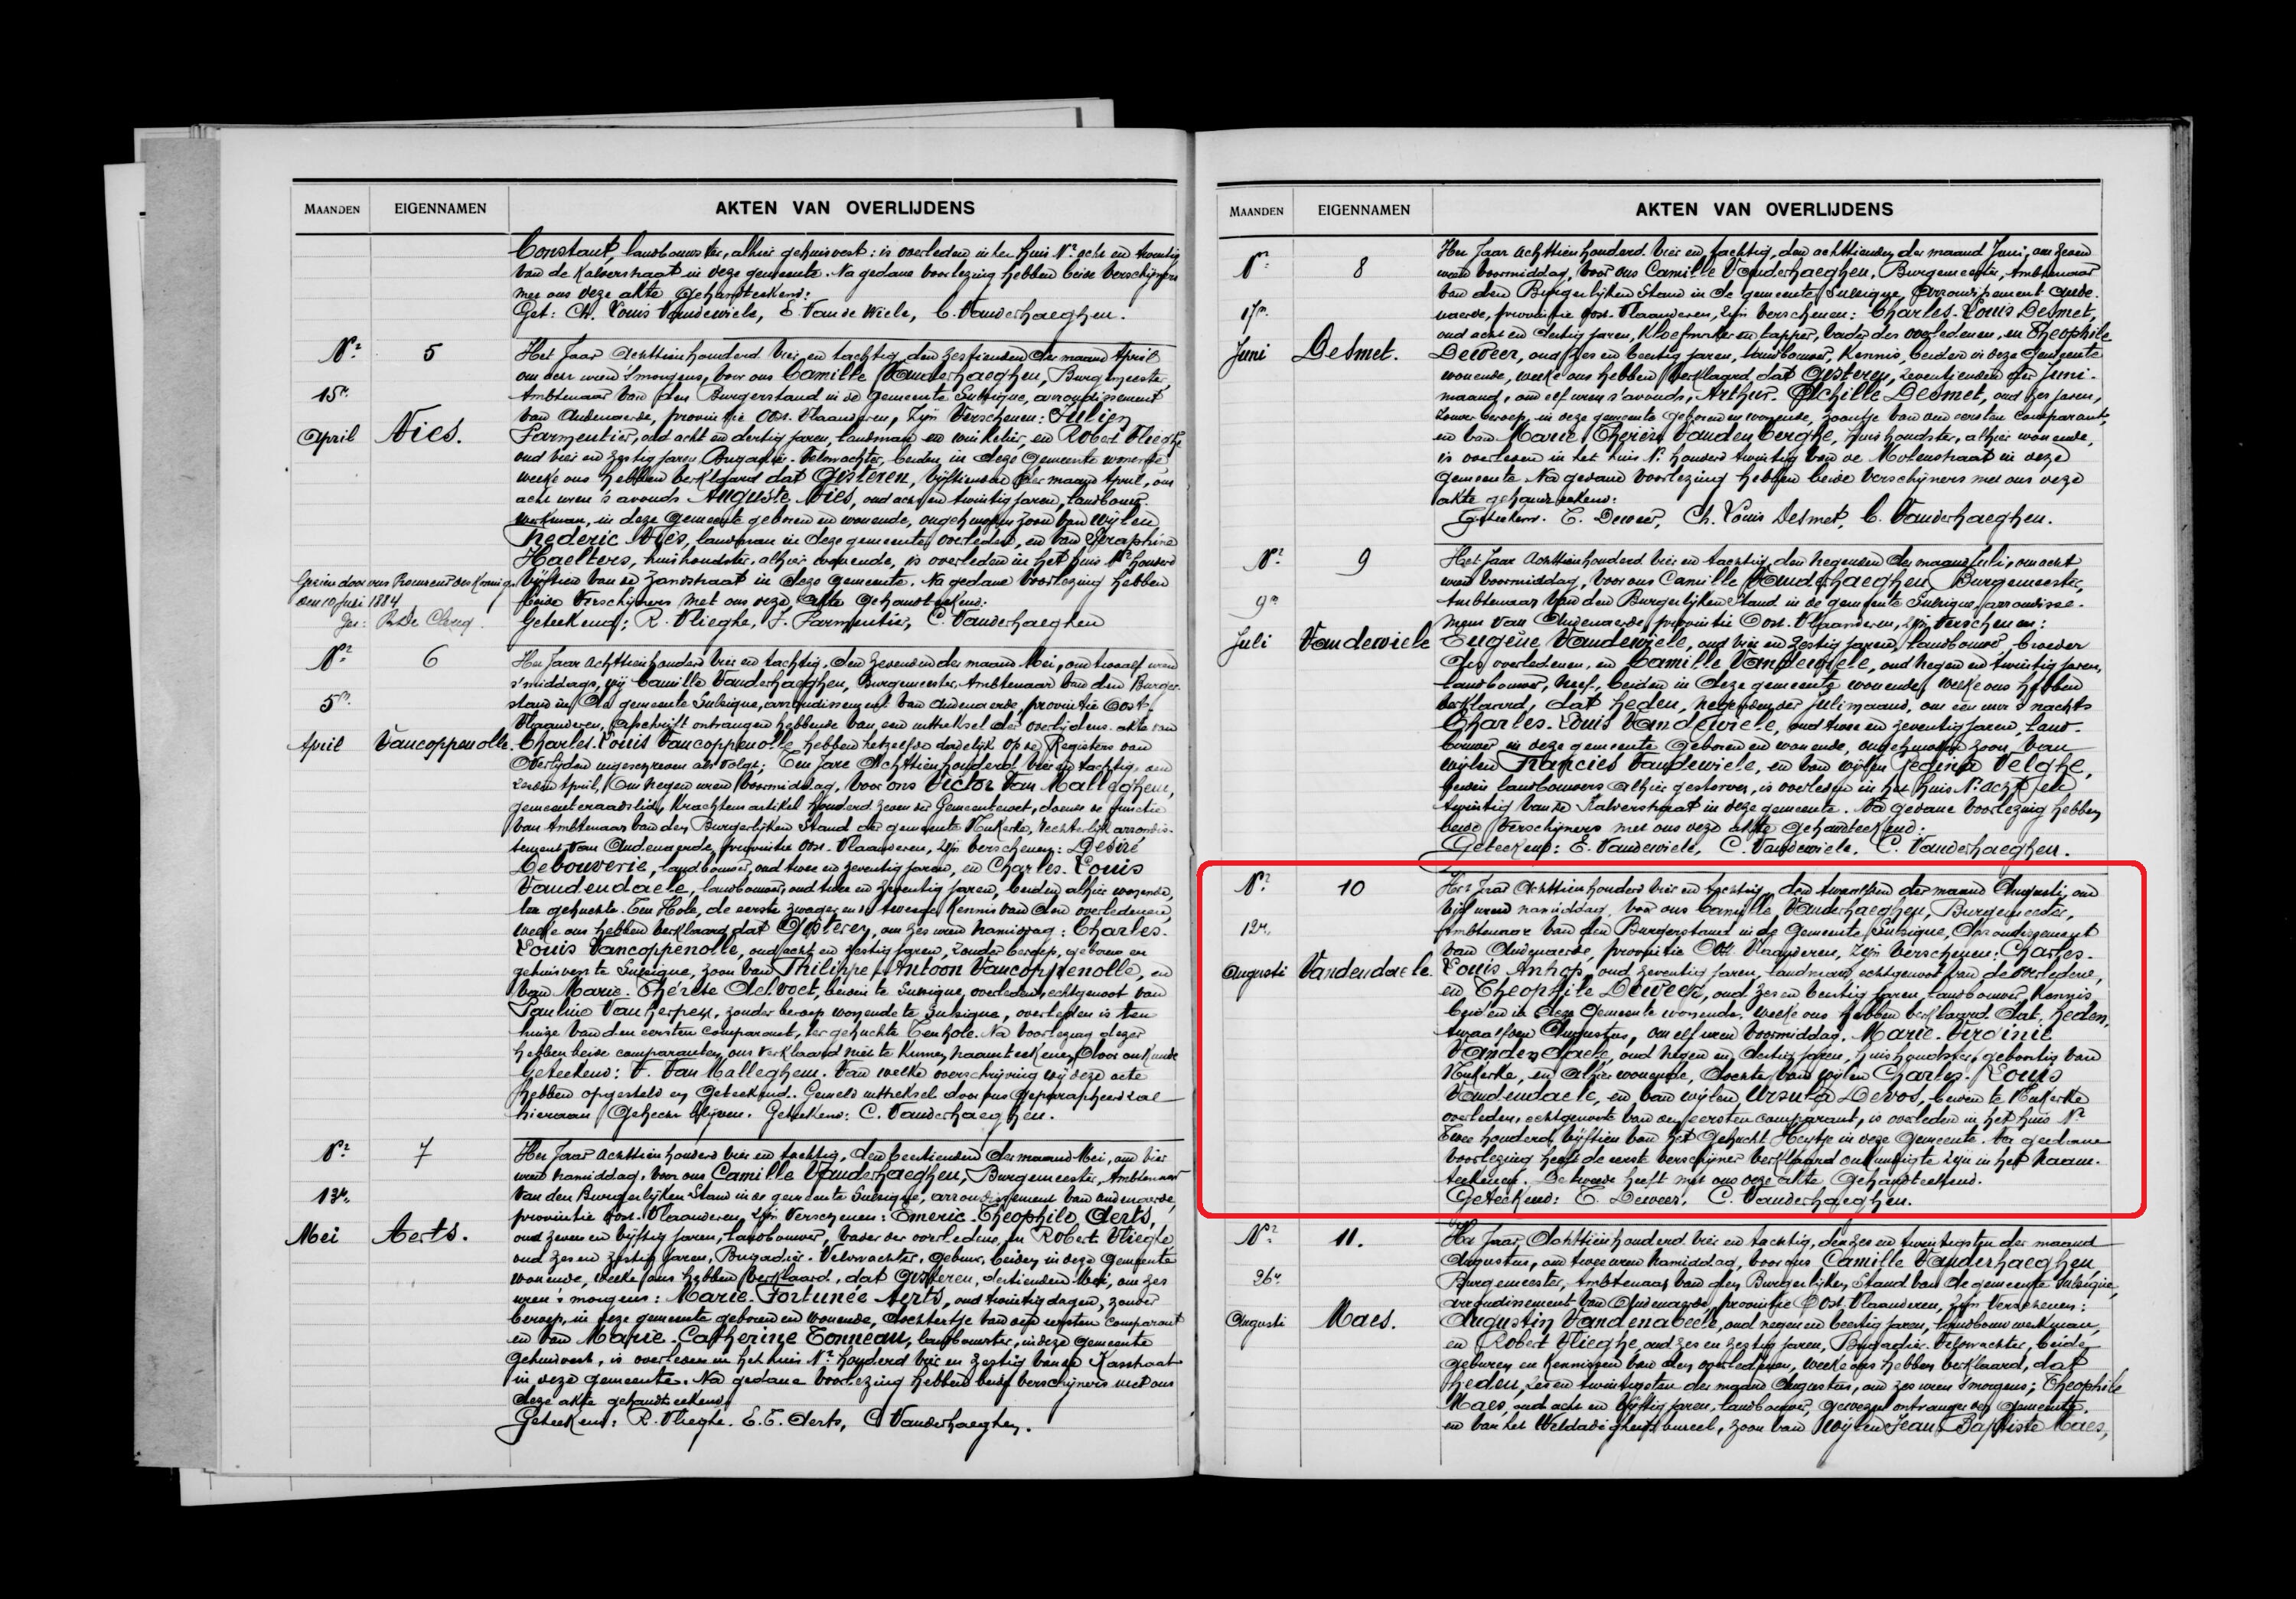 MAANDEN EIGENNAMEN AKTEN VAN OVERLIJDENS
Constant, landbouwster, alhier gehuisvest: is overleden in het huis Nr acht en twintig
van de Kalverstraat in deze gemeente. Na gedane voorlezing hebben beide verschijners
met ons deze akte gehandteekend:
Get: Ch. Louis Vandewiele, E. Van de Wiele, C. Vanderhaeghen.
Nr 5 Het Jaar achttienhonderd vier en tachtig, den zestienden der maand April
om acht uren 's morgens, voor ons Camille Vanderhaeghen, Burgmeester,
15n Ambtenaar van den Burgerstand in de gemeente Sulsique, arrondissement
van Audenaerde, provintie Oost-Vlaanderen, Zijn Verschenen: Julien
April Nies. Parmentier, oud acht en dertig jaren, landman en winkelier, en Robert Vlieghe
oud vier en zestig jaren, Brigadier-Veldwachter, beiden in deze gemeente wonende,
welke ons hebben verklaard dat Gisteren, vijftienden der maand April, om
acht uren 's avonds Auguste Nies, oud acht en twintig jaren, landbouw
werkman, in deze gemeente geboren en wonende, ongehuwden zoon van wijlen
Frederic Nies, landman in deze gemeente overleden, en van Seraphine
Haelters, huishoudster, alhier wonende, is overleden in het huis Nr honderd
Gezien door ons Procureur des Konings vijftien van de Zandstraat in deze gemeente. Na gedane voorlezing hebben
den 10 Juni 1884 beide Verschijners met ons deze akte gehandteekend:
Get: R. De Clercq. Geteekend: R. Vlieghe, J. Parmentier, C. Vanderhaeghen
Nr 6 Het Jaar achttienhonderd vier en tachtig, den zevenden der maand Mei, om twaalf uren
s'middags, wij Camille Vanderhaeghen, Burgemeester, Ambtenaar van den Burger-
5n stand in de gemeente Sulsique, arrondissement van Audenaerde, provintie Oost-
Vlaanderen, afschrift ontvangen hebbende van een uittreksel der overlijdens-akte van
April Vancoppenolle. Charles-Louis Vancoppenolle hebben hetzelfde dadelijk op de Registers van
Overlijden ingeschreven als volgt: Ten Jare Achttienhonderd vier en tachtig, den
zesden April, om negen uren voormiddag, voor ons Victor Van Malleghem,
gemeenteraadslid, krachtens artikel honderd zeven der Gemeentewet, doende de functie
van Ambtenaar van den Burgerlijken Stand der gemeente Nukerke, rechterlijk arrondis-
sement van Audenaerde, provintie Oost-Vlaanderen, zijn verschenen: Désiré
Debouverie, landbouwer, oud twee en zeventig jaren, en Charles-Louis
Vandendaele, landbouwer, oud twee en zeventig jaren, beiden alhier wonende,
ter gehuchte Ten Hole, de eerste zwager en de tweede kennis van den overledenen,
welke ons hebben verklaard dat Gisteren, om zes uren namiddag: Charles-
Louis Vancoppenolle, oud acht en zestig jaren, zonder beroep, geboren en
gehuisvest te Sulsique, zoon van Philippe-Antoon Vancoppenolle, en
van Marie-Thérèse Delvoet, beiden te Sulsique, overleden, echtgenoot van
Pauline Vanherpen, zonder beroep wonende te Sulsique, overleden is ten
huize van den eersten comparant, ter gehuchte Ten hole. Na voorlezing dezer
hebben beide comparanten ons verklaard niet te kunnen naamteekenen door onkunde
Geteekend: V. Van Malleghem. Van welke overschrijving wij deze acte
hebben opgesteld en Geteekend. Gemeld uittreksel door ons Geparapheerd zal
hieraan Gehecht blijven. Geteekend: C. Vanderhaeghen.
Nr 7 Het Jaar achttienhonderd vier en tachtig, den veertienden der maand Mei, om vier
uren namiddag, voor ons Camille Vanderhaeghen, Burgemeester, Ambtenaar
13n van den Burgerlijken Stand in de gemeente Sulsique, arrondissement van Audenaerde,
provintie Oost-Vlaanderen, zijn Verschenen: Emeric-Théophile Aerts,
Mei Aerts. oud zeven en vijftig jaren, landbouwer, vader der overledene, en Robert Vlieghe
oud zes en zestig jaren, Brigadier-Veldwachter, Gebuur, beiden in deze Gemeente
wonende, welke ons hebben verklaard, dat Gisteren, dertienden Mei, om zes
uren 's morgens: Marie-Fortunée Aerts, oud twintig dagen, zonder
beroep, in deze gemeente geboren en wonende, dochtertje van den eersten comparant
en van Marie-Catherine Tonneau, landbouwster, in deze gemeente
gehuisvest, is overleden in het huis Nr honderd vier en zestig van de Kasstraat
in deze gemeente. Na gedane voorlezing hebben beide verschijners met ons
deze akte gehandteekend,
Geteekend: R. Vlieghe. E. T. Aerts, C. Vanderhaeghen.
MAANDEN EIGENNAMEN AKTEN VAN OVERLIJDENS
Nr 8 Het Jaar achttienhonderd vier en tachtig, den achttienden der maand Juni, om zeven
uren voormiddag, voor ons Camille Vanderhaeghen, Burgemeester, Ambtenaar
van den Burgerlijken Stand in de gemeente Sulsique, Arrondissement Aude-
17n naerde, provintie Oost-Vlaanderen, zijn verschenen: Charles-Louis Desmet,
oud acht en dertig jaren, Kloefmaker en tapper, vader des overledenen, en Theophile
Juni Desmet. Deweer, oud zes en veertig jaren, landbouwer, Kennis, beiden in deze Gemeente
wonende, welke ons hebben verklaard dat Gisteren, zeventienden der Juni-
maand, om elf uren s'avonds, Arthur-Achille Desmet, oud zes jaren,
zonder beroep, in deze gemeente geboren en wonende, zoontje van den eersten comparant,
en van Marie Thérèse Vandenberghe, huishoudster, alhier wonende,
is overleden in het huis Nr honderd twintig van de Molenstraat in deze
gemeente Na gedane voorlezing hebben beide verschijners met ons deze
akte gehandteekend:
Geteekend. T. Deweer, Ch. Louis Desmet, C. Vanderhaeghen.
Nr 9 Het Jaar achttienhonderd vier en tachtig, den negenden der maand Juli, om acht
uren voormiddag, voor ons Camille Vanderhaeghen, Burgemeester,
9n Ambtenaar van den Burgerlijken Stand in de gemeente Sulsique, arrondisse-
ment van Audenaerde, provintie Oost-Vlaanderen, zijn verschenen:
Juli Vandewiele Eugène Vandewiele, oud vier en zestig jaren, landbouwer, broeder
des overledenen, en Camille Vandewiele, oud negen en twintig jaren,
landbouwer, neef, beiden in deze gemeente wonende, welke ons hebben
verklaard, dat heden, negenden der Julimaand, om één uur 's nachts
Charles-Louis Vandewiele, oud twee en zeventig jaren, land-
bouwer in deze gemeente geboren en wonende, ongehuwden zoon van
wijlen Francies Vandewiele, en van wijlen Regina Velghe,
beiden landbouwers alhier gestorven, is overleden in het huis Nr acht en
twintig van de Kalverstraat in deze gemeente. Na gedane voorlezing hebben
beide verschijners met ons deze akte gehandteekend:
Geteekend: E. Vandewiele, C. Vandewiele. C. Vanderhaeghen.
Nr 10 Het Jaar Achttienhonderd vier en tachtig, den twaalfden der maand Augusti, om
vijf uren namiddag, voor ons Camille Vanderhaeghen, Burgemeester,
12n Ambtenaar van den Burgerstand in de Gemeente Sulsique, Arrondissement
van Audenaerde, provintie Oost-Vlaanderen, zijn verschenen: Charles-
Augusti Vandendaele. Louis Anhop, oud zeventig jaren, landman, echtgenoot van de overledene,
en Theophile Deweer, oud zes en veertig jaren, landbouwer, Kennis,
beiden in deze Gemeente wonende. Welke ons hebben verklaard. Dat, heden,
twaalfden Augustus, om elf uren voormiddag. Marie-Virginie
Vandendaele, oud negen en dertig jaren, huishoudster, geboortig van
Nukerke, en alhier wonende, dochter van wijlen Charles-Louis
Vandendaele, en van wijlen Ursula Devos, beiden te Nukerke
overleden, echtgenoote van den eersten comparant, is overleden in het huis Nr
Twee honderd vijftien van het Gehucht Heytje in deze Gemeente. Na gedane
voorlezing heeft de eerste verschijner verklaard onkundig te zijn in het naam-
teekenen. De tweede heeft met ons deze akte Gehandteekend.
Geteekend: T. Deweer, C. Vanderhaeghen.
Nr 11. Het Jaar, Achttienhonderd vier en tachtig, den zes en twintigsten der maand
Augustus, om twee uren namiddag, voor ons Camille Vanderhaeghen,
26n Burgemeester, Ambtenaar van den Burgerlijken Stand van de gemeente Sulsique,
arrondissement van Audenaerde, provintie Oost-Vlaanderen, zijn Verschenen:
Augusti Maes. Augustin Vandenabeele, oud negen en veertig jaren, landbouwwerkman,
en Robert Vlieghe oud zes en zestig jaren, Brigadier-Veldwachter, beide
geburen en kennissen van den overledenen, welke ons hebben verklaard, dat
heden, zes en twintigsten der maand Augustus, om zes uren 's morgens; Theophile
Maes, oud acht en vijftig jaren, landbouwer, gewezen ontvanger der Gemeente,
en van het Weldadigheidsbureel, zoon van wijlen Jean-Baptiste Maes,